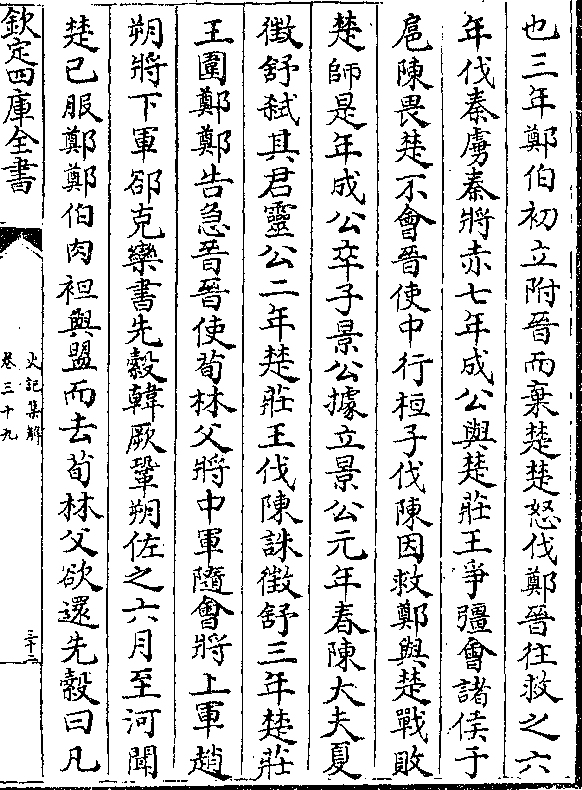 也三年鄭伯初立附晉而棄楚楚怒伐鄭晉往救之六
年伐秦虜秦將赤七年成公與楚莊王爭彊會諸侯于
扈陳畏楚不會晉使中行桓子伐陳因救鄭與楚戰敗
楚師是年成公卒子景公據立景公元年春陳大夫夏
徵舒弑其君靈公二年楚莊王伐陳誅徵舒三年楚莊
王圍鄭鄭告急晉晉使荀林父將中軍隨會將上軍趙
朔將下軍郤克欒書先縠韓厥鞏朔佐之六月至河聞
楚已服鄭鄭伯肉袒與盟而去荀林父欲還先縠曰凡
欽定四庫全書
史記集解
卷三十九
三十二